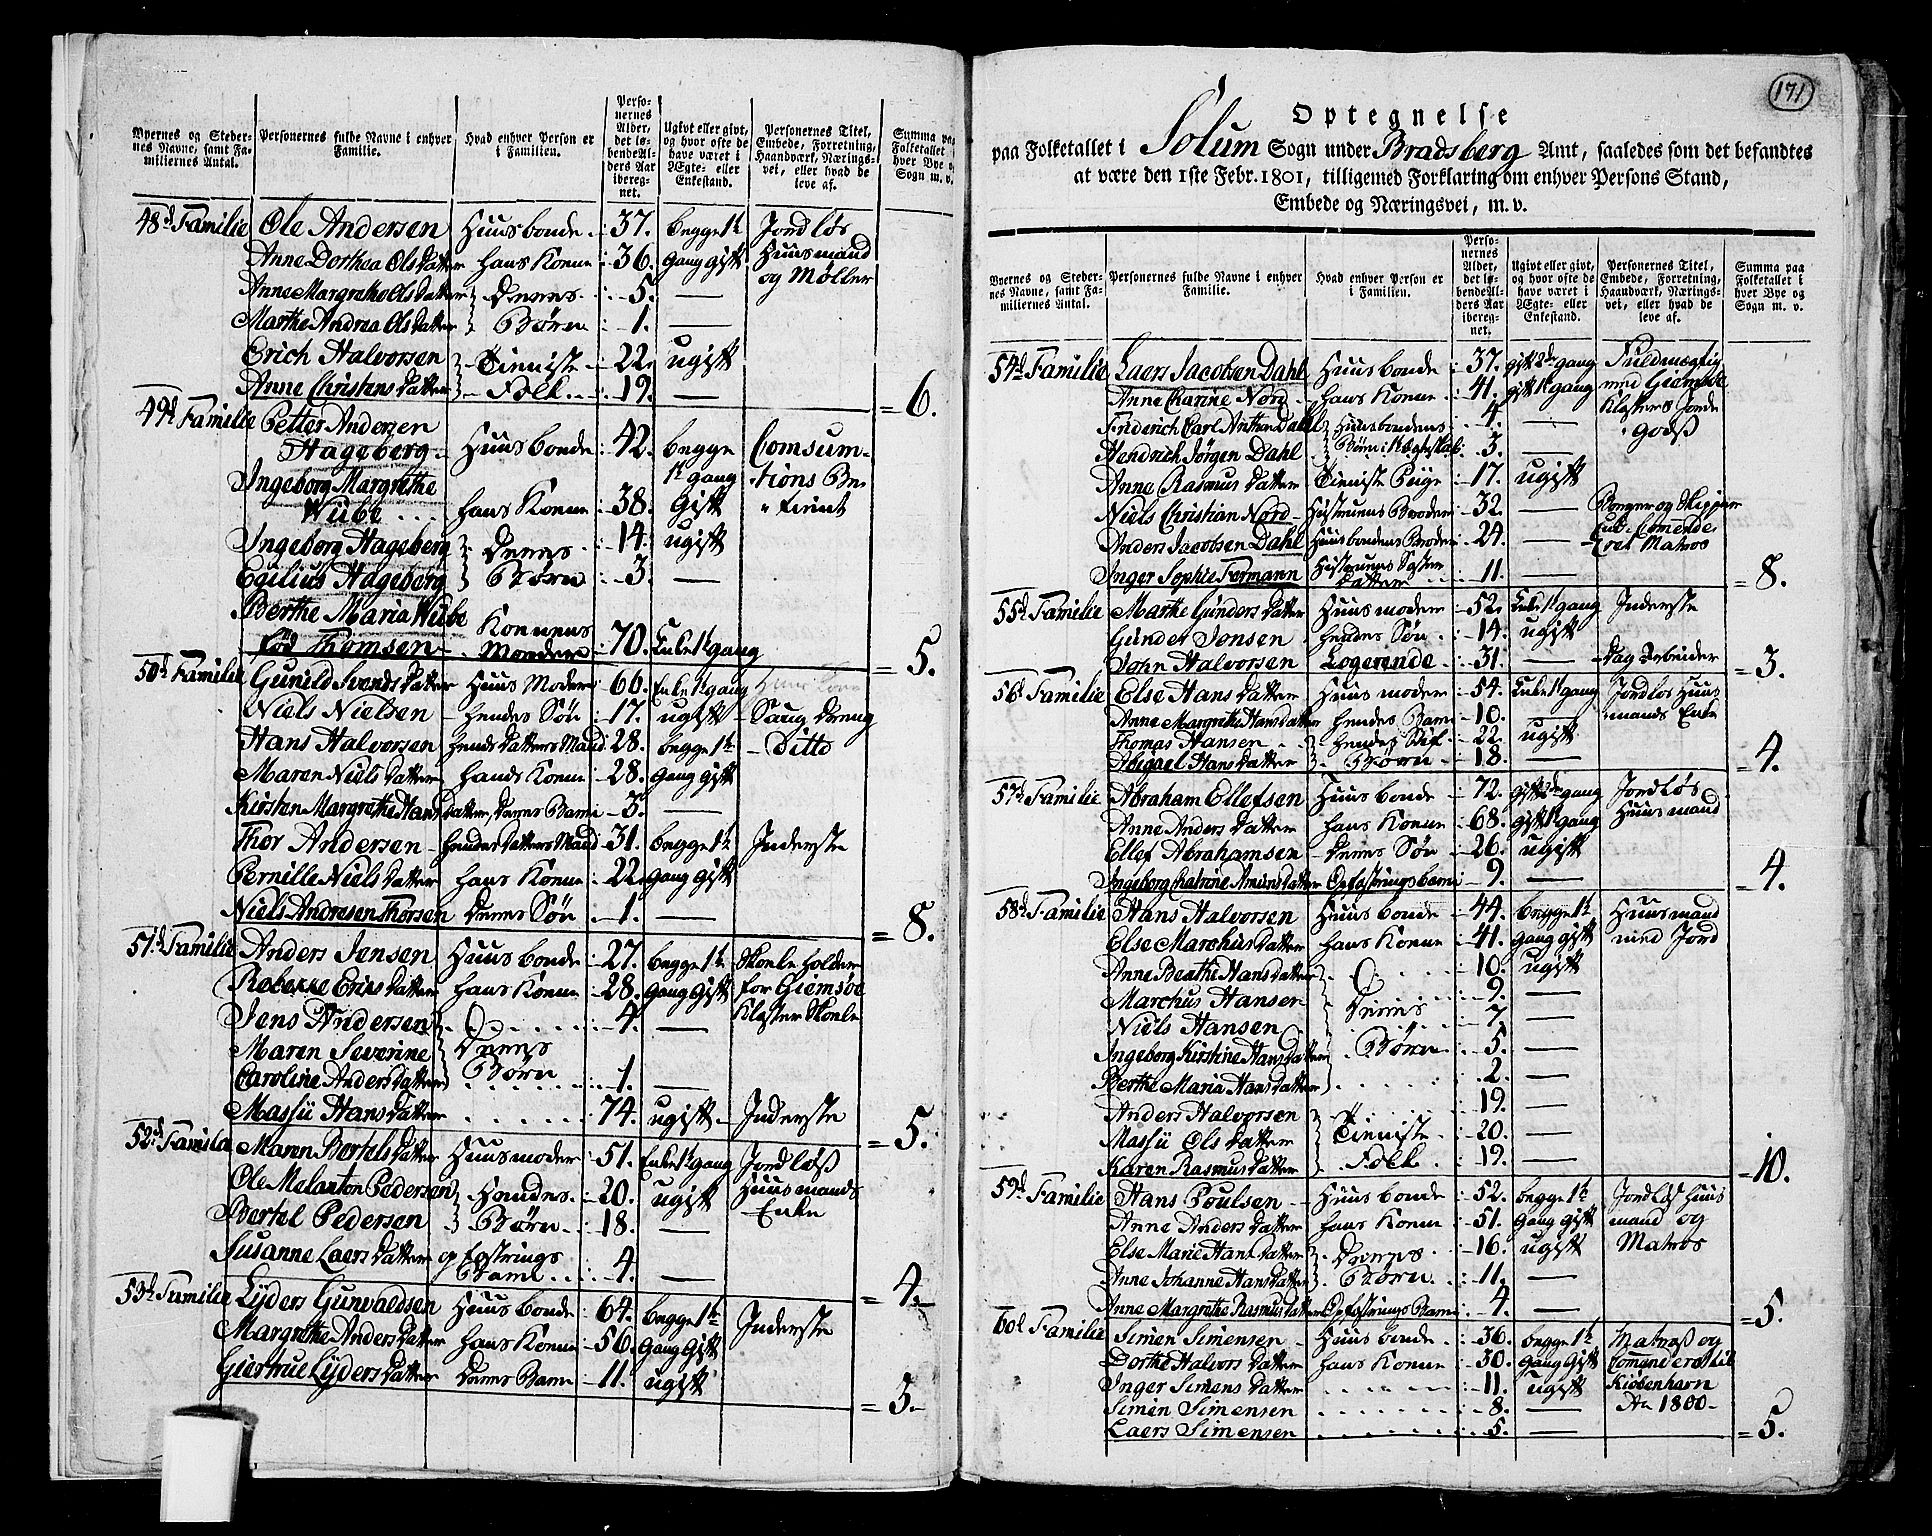 Byernes og Steder-
nes Navne, samt Fa-
miliernes Antal.
Personernes fulde Navne i enhver
Familie.
Hvad enhver Person er
i Familien.
Perso-
nernes
Alder,
det lø-
bende Al-
ders Aar
ibereg-
net.
Ugivt eller givt,
og hvor ofte de
have været i
Ægte- eller
Enkestand.
Personernes Titel,
Embede, Forretning,
Haandværk, Nærings-
vei, eller hvad de
leve af.
Summa paa
Folketallet i
hver Bye og
Sogn m. v.
48de Familie Ole Andersen Huusbonde 37. begge 1te Jordløs
Anne Dorthea Olsdatter hans Konne 36. Gang gift Huusmand
Anne Margrethe Olsdatter Deres 5. — og Møller
Marthe Andrea Olsdatter Børn 1. —
Erich Halvorsen Tieniste 22. ugift
Anne Christensdatter Folk 19. — = 6.
49de Familie Petter Andersen
Hageberg Huusbonde 42. begge Comsum-
Ingeborg Margrethe 1te gang tions Be-
Wübe hans Konne 38. Gift tient
Ingeborg Hageberg Deres 14. ugift
Egilius Hageberg Børn 3. —
Berthe Maria Wübe Konnens
fød Thomsen Moder 70. Enke 1te gang = 5.
50de Familie Gunild Svendsdatter Huus Moder 66. Enke 1te gang
Niels Nielsen hendes Søn 17. ugift Saug Dreng
Hans Halvorsen hendes Datters Mand 28. begge 1te Ditto
Maren Nielsdatter hands Konne 28. Gang gift
Kirsten Margrethe Hansdatter, Deres Barn 3. —
Thor Andersen hendes Datters Mand 31. begge 1te Inderste
Pernille Nielsdatter hans Konne 22. Gang Gift
Niels Andresen Thorsen Deres Søn 1. — = 8.
51de Familie Anders Jensen Huusbonde 27. begge 1te Skoele holder
Rebekke Ericsdatter hans Konne 28. Gang Gift for Giemsøe
Jens Andersen 4. — Kloster Skoele
Maren Severine Deres
Caroline Andersdatter Børn 1. —
Massü Hansdatter 74. ugift Inderste = 5.
52de Familie Maren Bertelsdatter Huusmoder 51. Enke 1te gang Jordløß
Ole Melanton Pedersen Hendes 20. ugift Huusmands
Bertel Pedersen Børn 18. — Enke
Susanne Laersdatter opfostrings 4
Barn 4. — = 4.
53de Familie Lyders Gunvaldsen Huusbonde 64. begge 1te Inderste
Margrethe Andersdatter hans Konne 56. Gang Gift
Giertrue Lydersdatter Deres Barn 11. ugift = 3.
171
Optegnelse
paa Folketallet i Solum Sogn under Bradsberg Amt, saaledes som det befandtes
at være den 1ste Febr. 1801, tilligemed Forklaring om enhver Persons Stand,
Embede og Næringsvei, m. v.
Byernes og Steder-
nes Navne, samt Fa-
miliernes Antal.
Personernes fulde Navne i enhver
Familie.
Hvad enhver Person er
i Familien.
Perso-
nernes
Alder,
det lø-
bende Al-
ders Aar
iberegnet.
net.
Ugivt eller givt,
og hvor ofte de
have været i
Ægte- eller
Enkestand.
Personernes Titel,
Embede, Forretning,
Haandværk, Nærings-
vei, eller hvad de
leve af.
Summa paa
Folketallet i
hver Bye og
Sogn m. v.
54de Familie Laers Jacobsen Dahl Huusbonde 37. gift 2de gang Fuldmægtig
Anne Carine Nord hans Konne 41. gift 1te gang med Giemsøe
Friderich Carl Anthon Dahl Huusbondens 4. — Klosters Jorde
Hendrich Jørgen Dahl Børn i 1te Ægteskab 3. — Godß
Anne Rasmusdatter Tieniste Peige 17. ugift
Niels Christian Nord Hustruens Broder 32. — Borger og Skipper
Anders Jacobsen Dahl Huusbondens Broder 24. — Matros
Inger Sophie Formann Hustruens Søster
Datter 11. — = 8.
55de Familie Marthe Gundersdatter Huusmoder 52. Enke 1te gang Inderste
Gunder Jensen hendes Søn 14. ugift
John Halvorsen Logerende 31. — Dag Arbeider = 3.
56de Familie Else Hansdatter Huusmoder 54. Enke 1te gang Jordløs Huus
Anne Margrethe Hansdatter hendes Barn 10. — mands Enke
Thomas Hansen hendes Stif 22. ugift
Abigael Hansdatter Børn 18. — = 4.
57de Familie Abraham Ellefsen Huusbonde 72. gift 2de gang Jordløs
Anne Andersdatter hans Konne 68. gift 1te gang Huusmand
Ellef Abrahamsen Deres Søn 26. ugift
Ingeborg Chatrine Amundsdatter Opfostringsbarn 9. — = 4.
58de Familie Hans Halvorsen Huusbonde 44. begge 1te Huusmand
Else Marchusdatter hans Konne 41. Gang gift med Jord
Anne Beathe Hansdatter 10. ugift
Marchus Hansen 9. —
Niels Hansen Deres 7. —
Ingeborg Kirstine Hansdatter Børn 5. —
Berthe Maria Hansdatter 2. —
Anders Halvorsen 19. —
Massü Olsdatter Tieniste 20. —
Karen Rasmusdatter Folk 19. — = 10.
59de Familie Hans Poulsen Huusbonde 52. begge 1te Jordløs Huus
Anne Andersdatter hans Konne 51. Gang Gift mand og
Else Marie Hansdatter Deres 16. ugift Matros
Anne Johanne Hansdatter Børn 11. —
Anne Margrethe Rasmusdatter Opfostrings Barn 4. — = 5.
60de Familie Simen Simensen Huusbonde 36. begge 1te Matroß og
Dorthe Halvorsdatter hans Konne 30. Gang Gift Comanderet til
Inger Simensdatter 11. ugift Kiøbenhavn
Simen Simensen 8. — Ao 1800
Laers Simensen 5. — = 5.